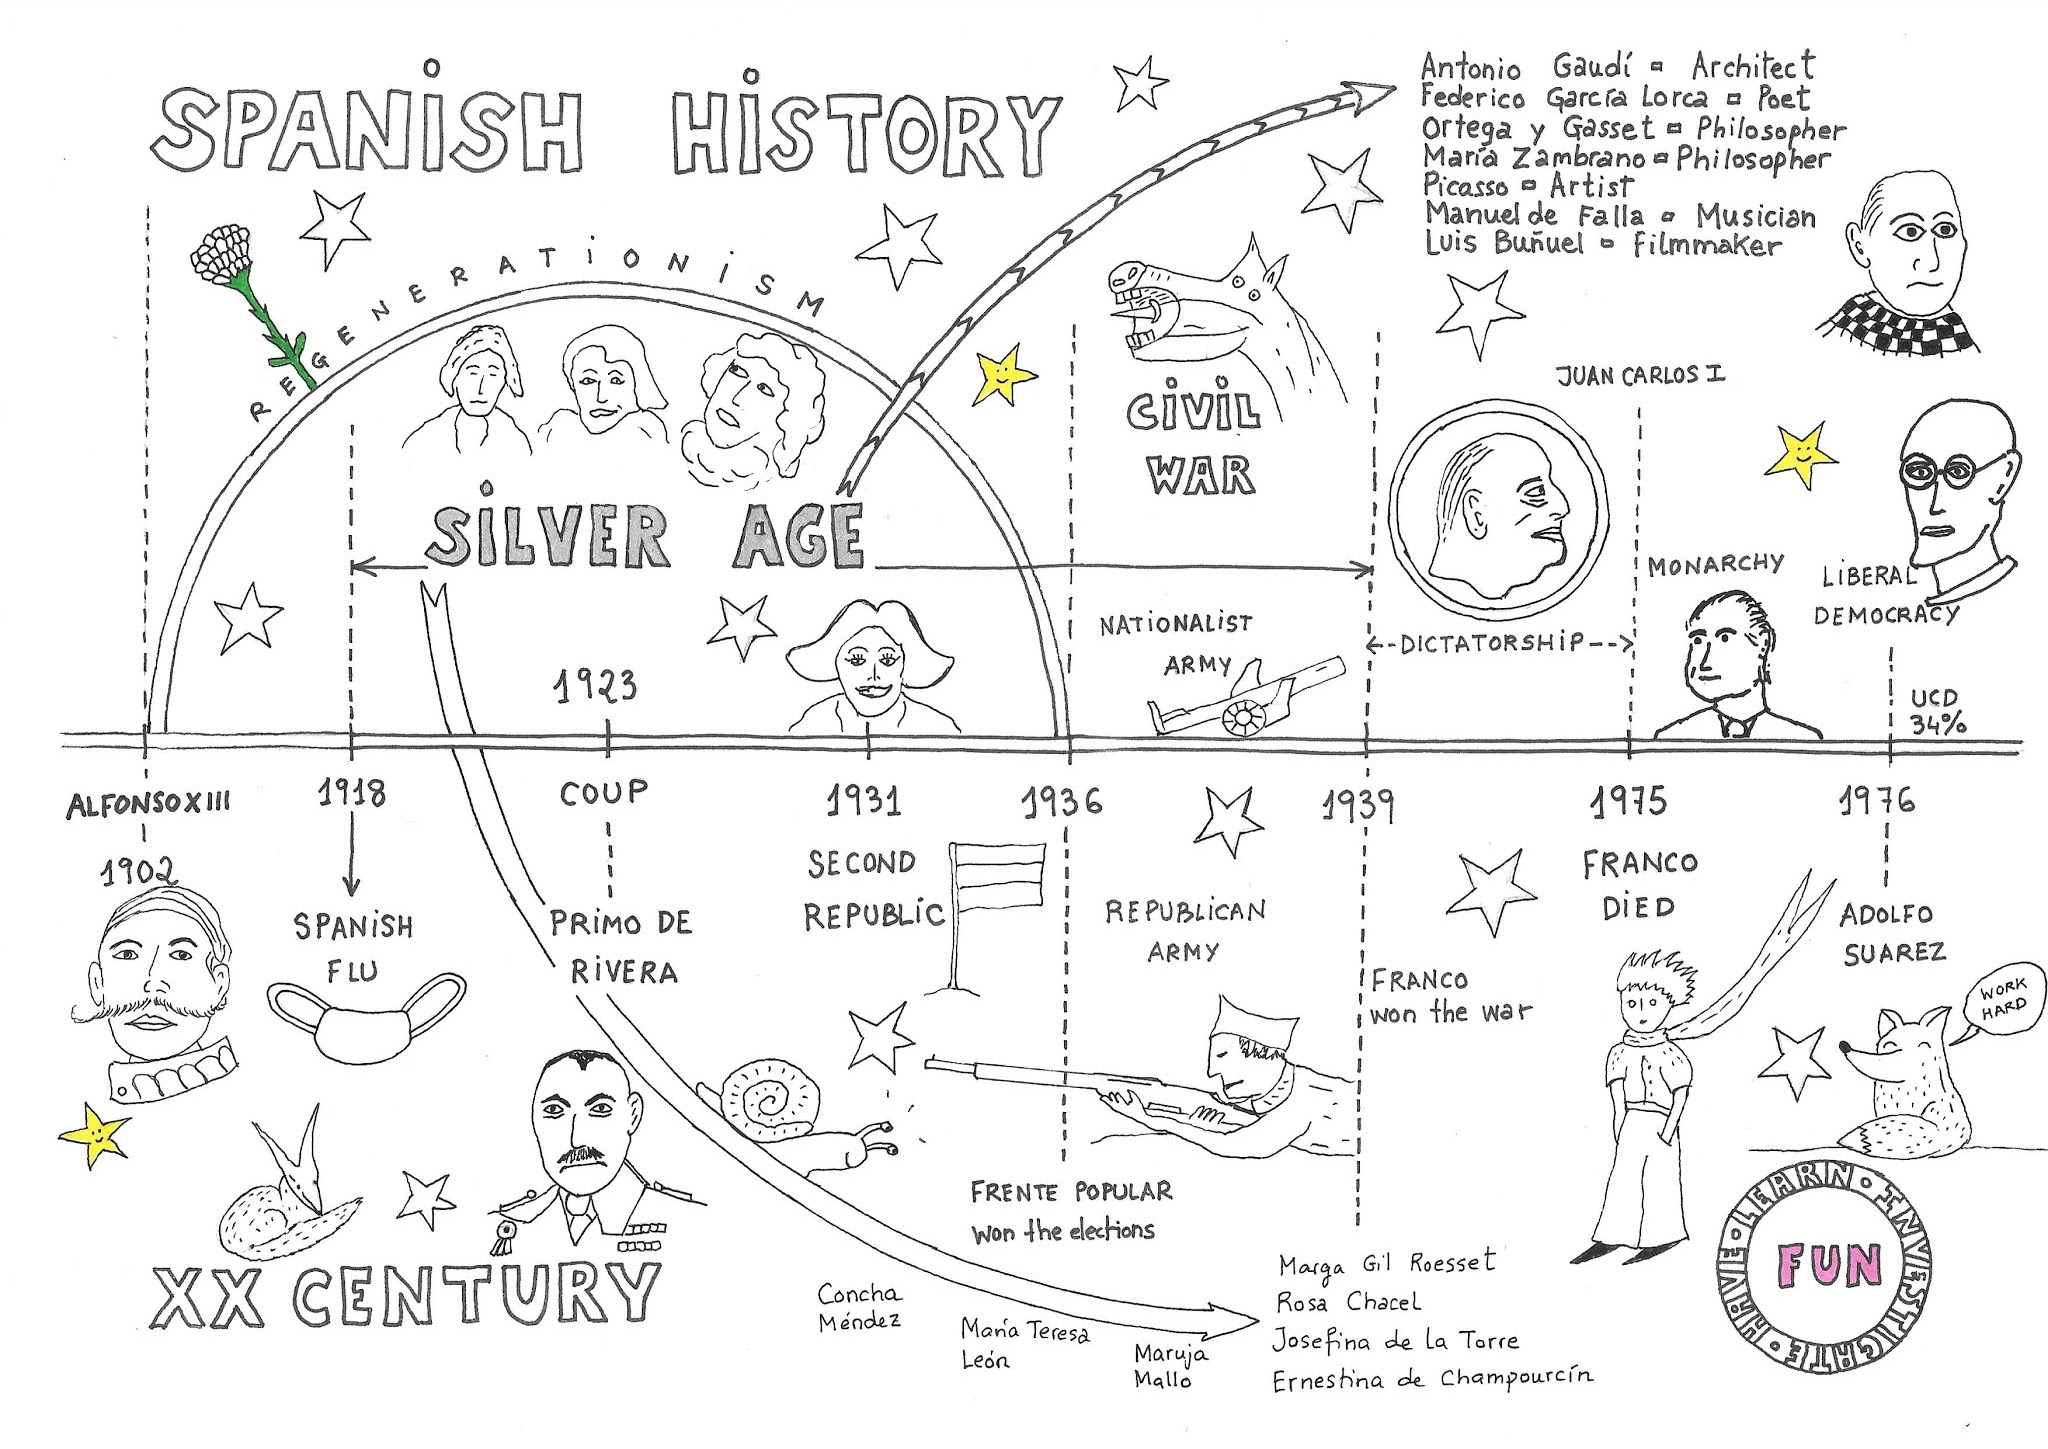 SPANiSH HiSTORY
Antonio Gaudí = Architect
Federico García Lorca = Poet
Ortega y Gasset = Philosopher
María Zambrano = Philosopher
Picasso = Artist
Manuel de Falla = Musician
Luis Buñuel = Filmmaker
REGENERATiONiSM
SiLVER AGE
CiViL
WAR
JUAN CARLOS I
MONARCHY
LiBERAL
DEMOCRACY
NATiONALiST
ARMY
DiCTATORSHiP
UCD
34%
1923
ALFONSO XIII
1902
1918
SPANiSH
FLU
COUP
PRiMO DE
RiVERA
1931
SECOND
REPUBLiC
1936
REPUBLiCAN
ARMY
FRENTE POPULAR
won the elections
1939
FRANCO
won the war
1975
FRANCO
DiED
1976
ADOLFO
SUAREZ
WORK
HARD
XX CENTURY
Concha
Méndez
María Teresa
León
Maruja
Mallo
Marga Gil Roesset
Rosa Chacel
Josefina de la Torre
Ernestina de Champourcín
HAVE • LEARN • INVESTIGATE •
FUN